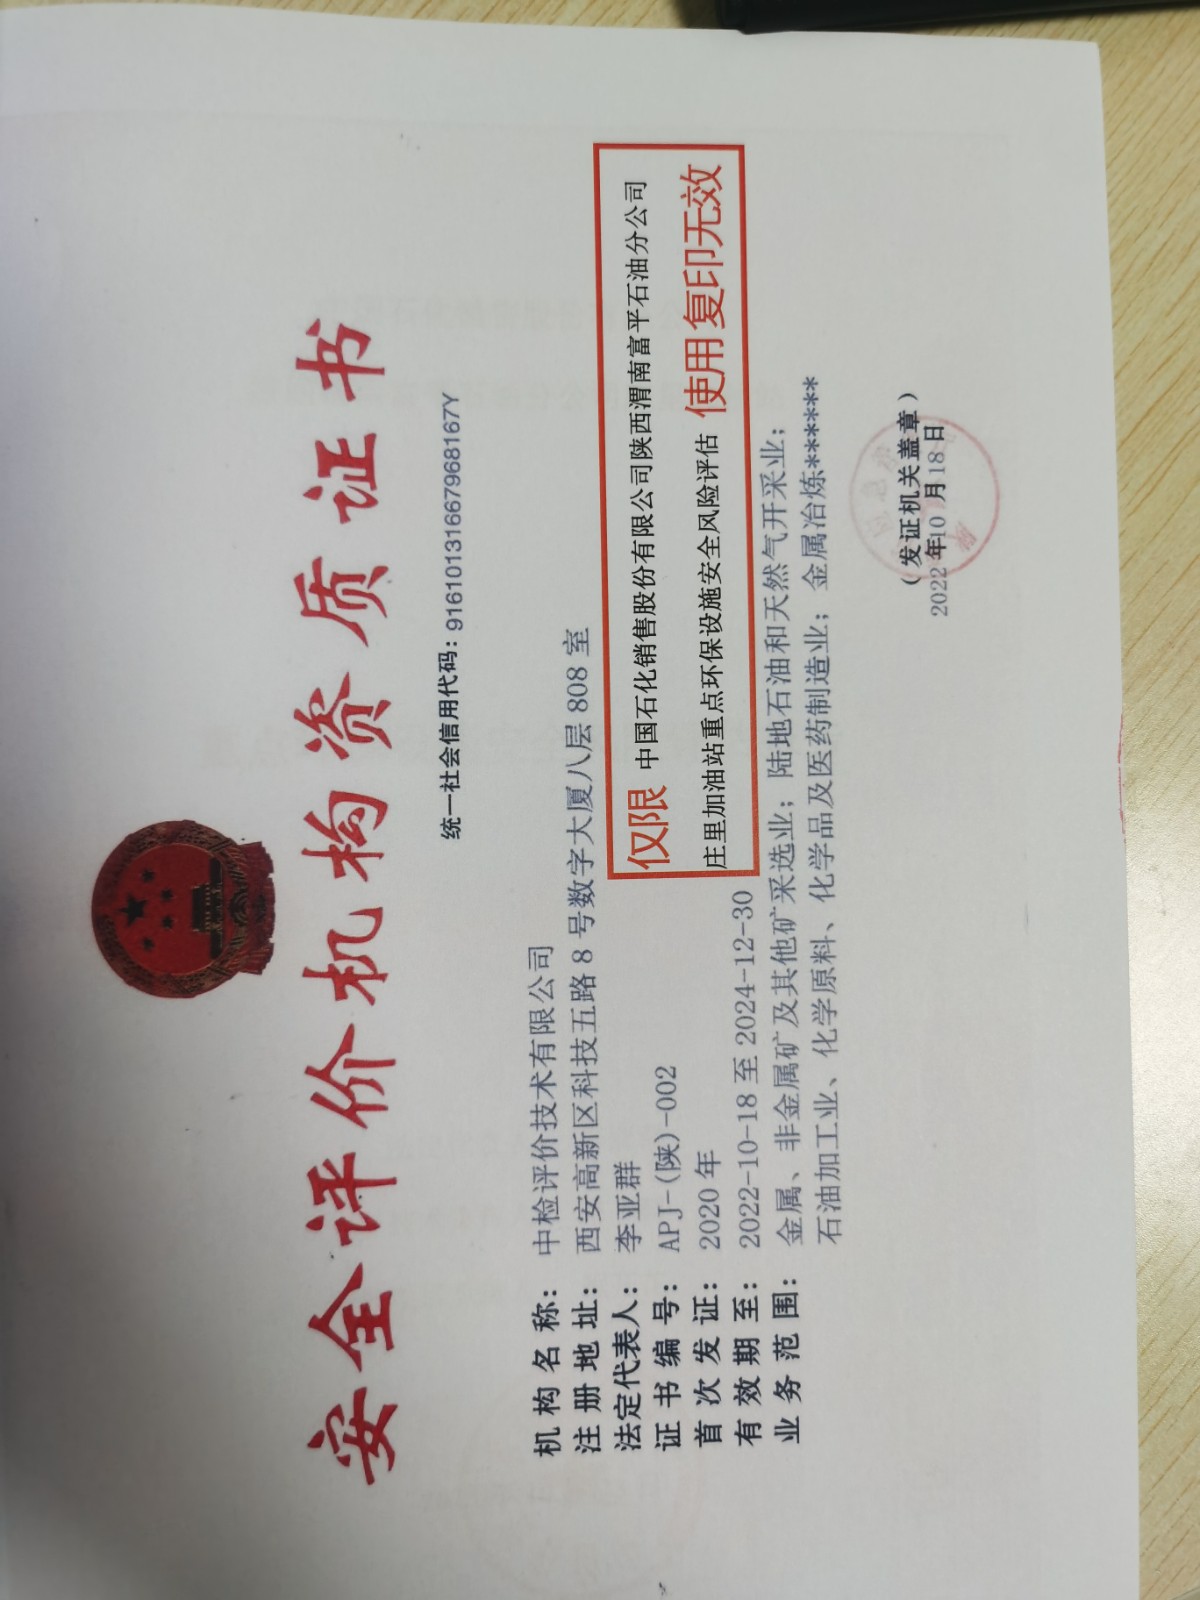 安全评价机构资质证书
统一社会信用代码：91610131667968167Y
机构名称：中检评价技术有限公司
注册地址：西安高新区科技五路8号数字大厦八层808室
法定代表人：李亚群
证书编号：APJ-(陕)-002
首次发证：2020年
有效期至：2022-10-18至2024-12-30
业务范围：金属、非金属矿及其他矿采选业；陆地石油和天然气开采业；
石油加工业、化学原料、化学品及医药制造业；金属冶炼******
仅限 中国石化销售股份有限公司陕西渭南富平石油分公司
庄里加油站重点环保设施安全风险评估 使用 复印无效
（发证机关盖章）
2022年10月18日